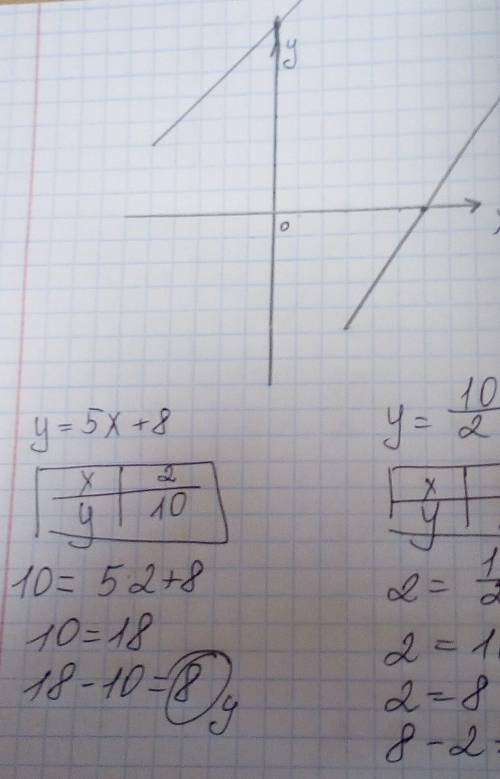 y
0
y = 5x + 8
x | 2
y | 10
10 = 5·2 + 8
10 = 18
18 - 10 = 8 y
y = 10/2
x
y
2 =
2 = 1
2 = 8
8 - 2 =